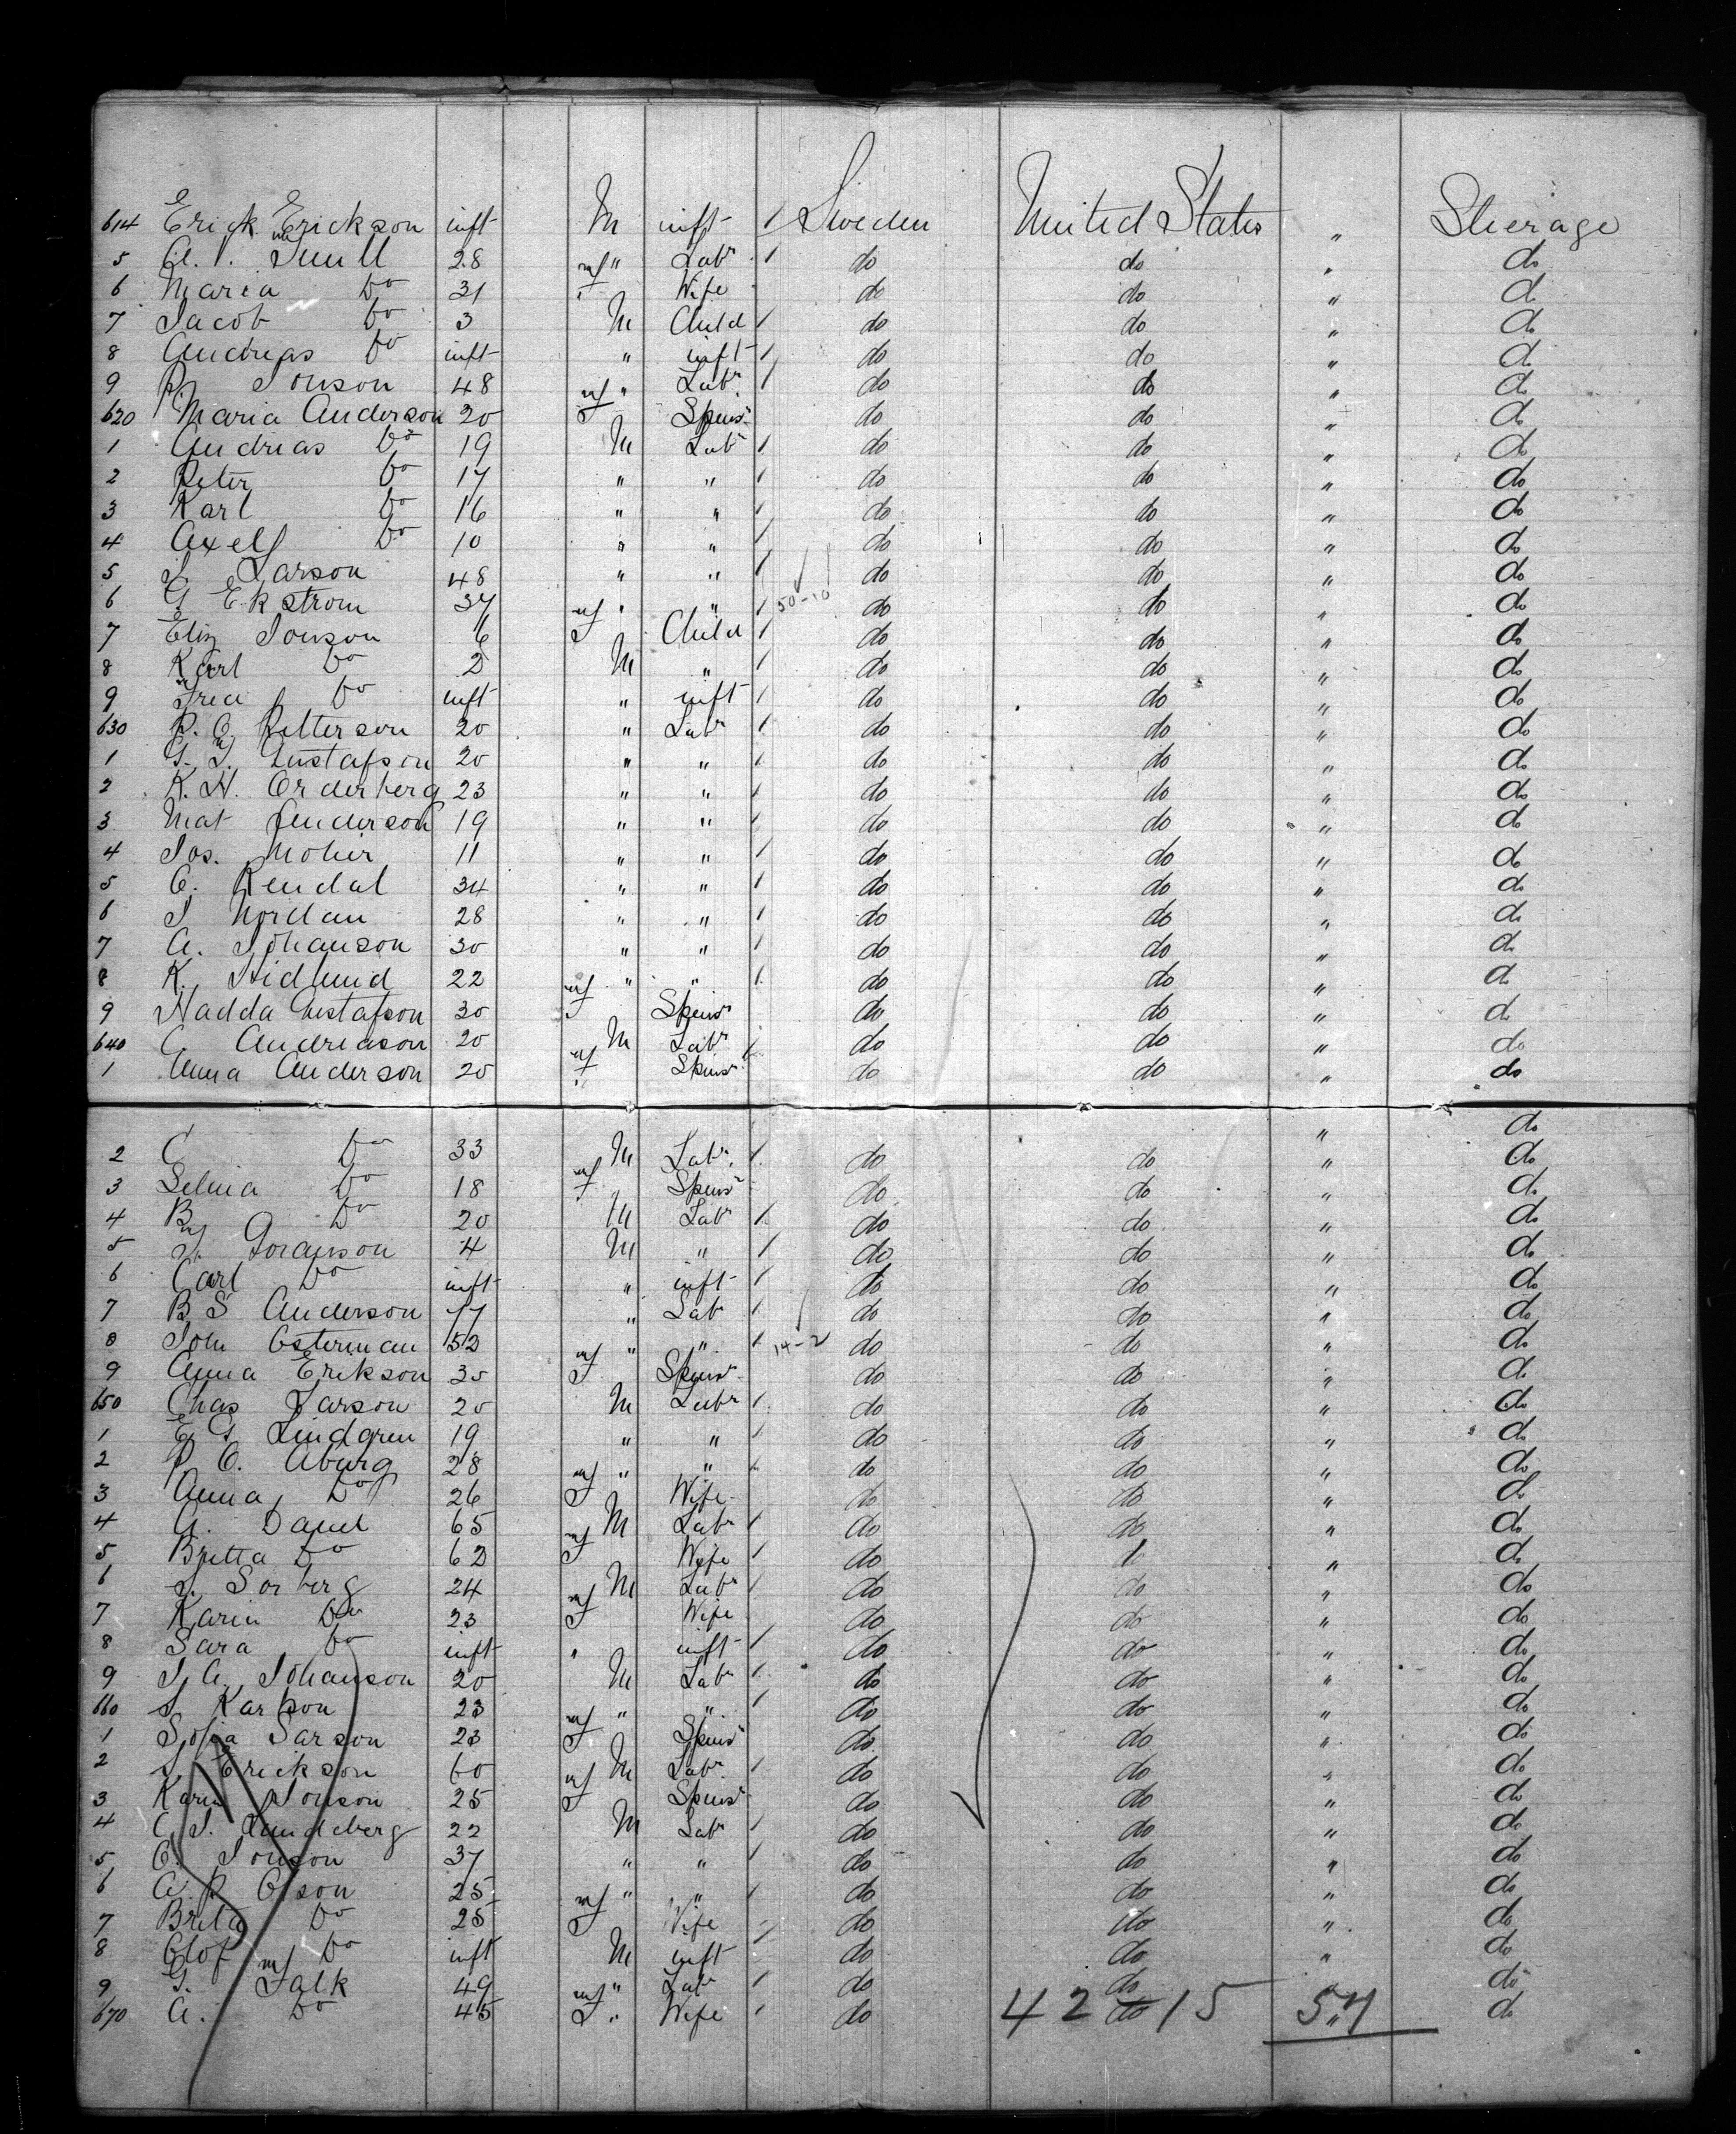 614 Erick Erickson inft M inft / Sweden United States " Steerage
5 A. Sunll 28 " Labr / do do " do
6 Maria Do 31 F Wife do do " do
7 Jacob Do 3 M Child / do do " do
8 Andreas Do inft " inft / do do " do
9 P. Jonson 48 " Labr / do do " do
620 Maria Anderson 20 F Spinsr do do " do
1 Andreas Do 19 M Labr / do do " do
2 Peter Do 17 " " / do do " do
3 Karl Do 16 " " / do do " do
4 Axel Do 10 " " / do do " do
5 Larson 48 " " / do do " do
6 G Ekstrom 37 " " / 50-10 do do " do
7 Eliz Jonson 6 F Child / do do " do
8 Karl Do 2 M " / do do " do
9 Fred Do inft " inft / do do " do
630 P. O. Petterson 20 " Labr / do do " do
1 G. F. Gustafson 20 " " / do do " do
2 K. H. Orderberg 23 " " / do do " do
3 Mat Anderson 19 " " / do do " do
4 Jos. Moher 11 " " / do do " do
5 C. Rendal 34 " " / do do " do
6 J Nordan 28 " " / do do " do
7 A. Johanson 30 " " / do do " do
8 K. Hidlund 22 " " / do do " do
9 Hadda Gustafson 30 F Spinsr do do " do
640 C. Andreason 20 M Labr / do do " do
1 Anna Anderson 20 F Spinsr do do " do
" do
2 C Do 33 M Labr / do do " do
3 Selma Do 18 F Spinsr do do " do
4 B Do 20 M Labr / do do " do
5 F. Goranson 4 M " / do do " do
6 Carl Do inft " inft / do do " do
7 B S Anderson 17 " Labr / do do " do
8 John Osterman 52 " " / 14-2 do do " do
9 Anna Erikson 30 F Spinsr do do " do
650 Chas Larson 20 M Labr / do do " do
1 E G Lindgren 19 " " / do do " do
2 P O. Aburg 28 " " / do do " do
3 Anna Do 26 F Wife do do " do
4 A. Daniel 65 M Labr / do do " do
5 Britta Do 62 F Wife / do do " do
6 Sorberg 24 M Labr / do do " do
7 Karin Do 23 F Wife do do " do
8 Sara Do inft " inft / do do " do
9 J. A. Johanson 20 M Labr / do do " do
660 J Karlson 23 " " / do do " do
1 Sofia Larson 23 F Spinsr do do " do
2 J Erickson 60 M Labr / do do " do
3 Karin Jonson 25 F Spinsr do do " do
4 C J. Lundeberg 22 M Labr / do do " do
5 O. Jonson 37 " " / do do " do
6 A. P Olson 25 " " / do do " do
7 Brita Do 25 F Wife do do " do
8 Olof Do inft M inft do do " do
9 G. Falk 49 " Labr / do do " do
670 A. Do 45 F " Wife / do do " do
42-15 57